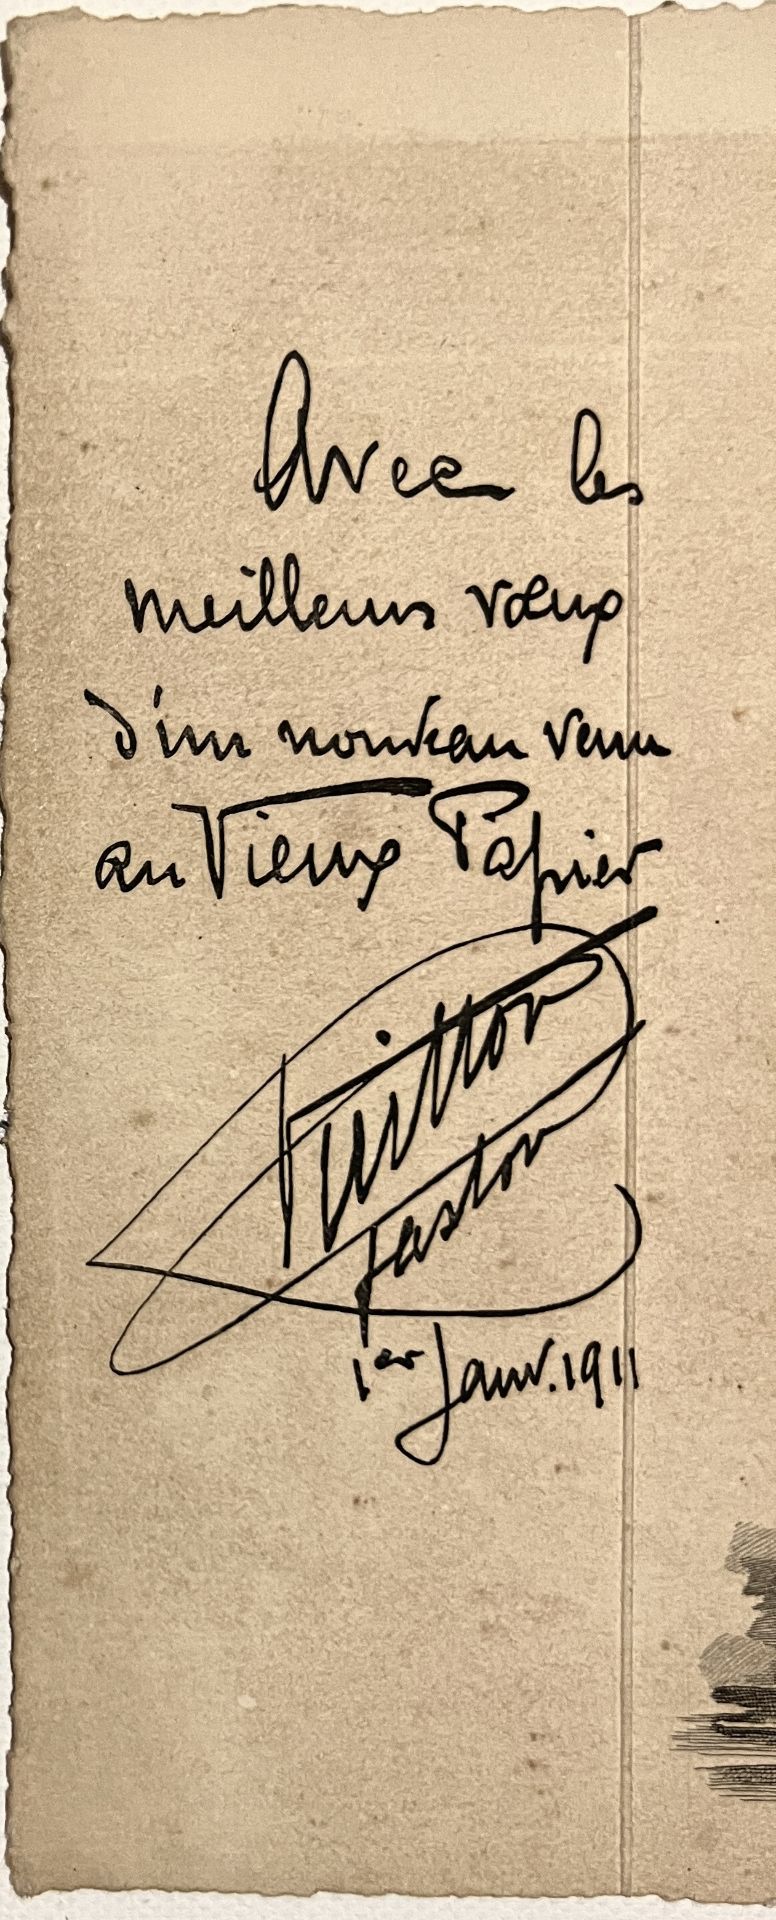 Avec les
meilleurs vœux
d'un nouveau venu
au Vieux Papier
Vuitton
Gaston
1er Janv. 1911